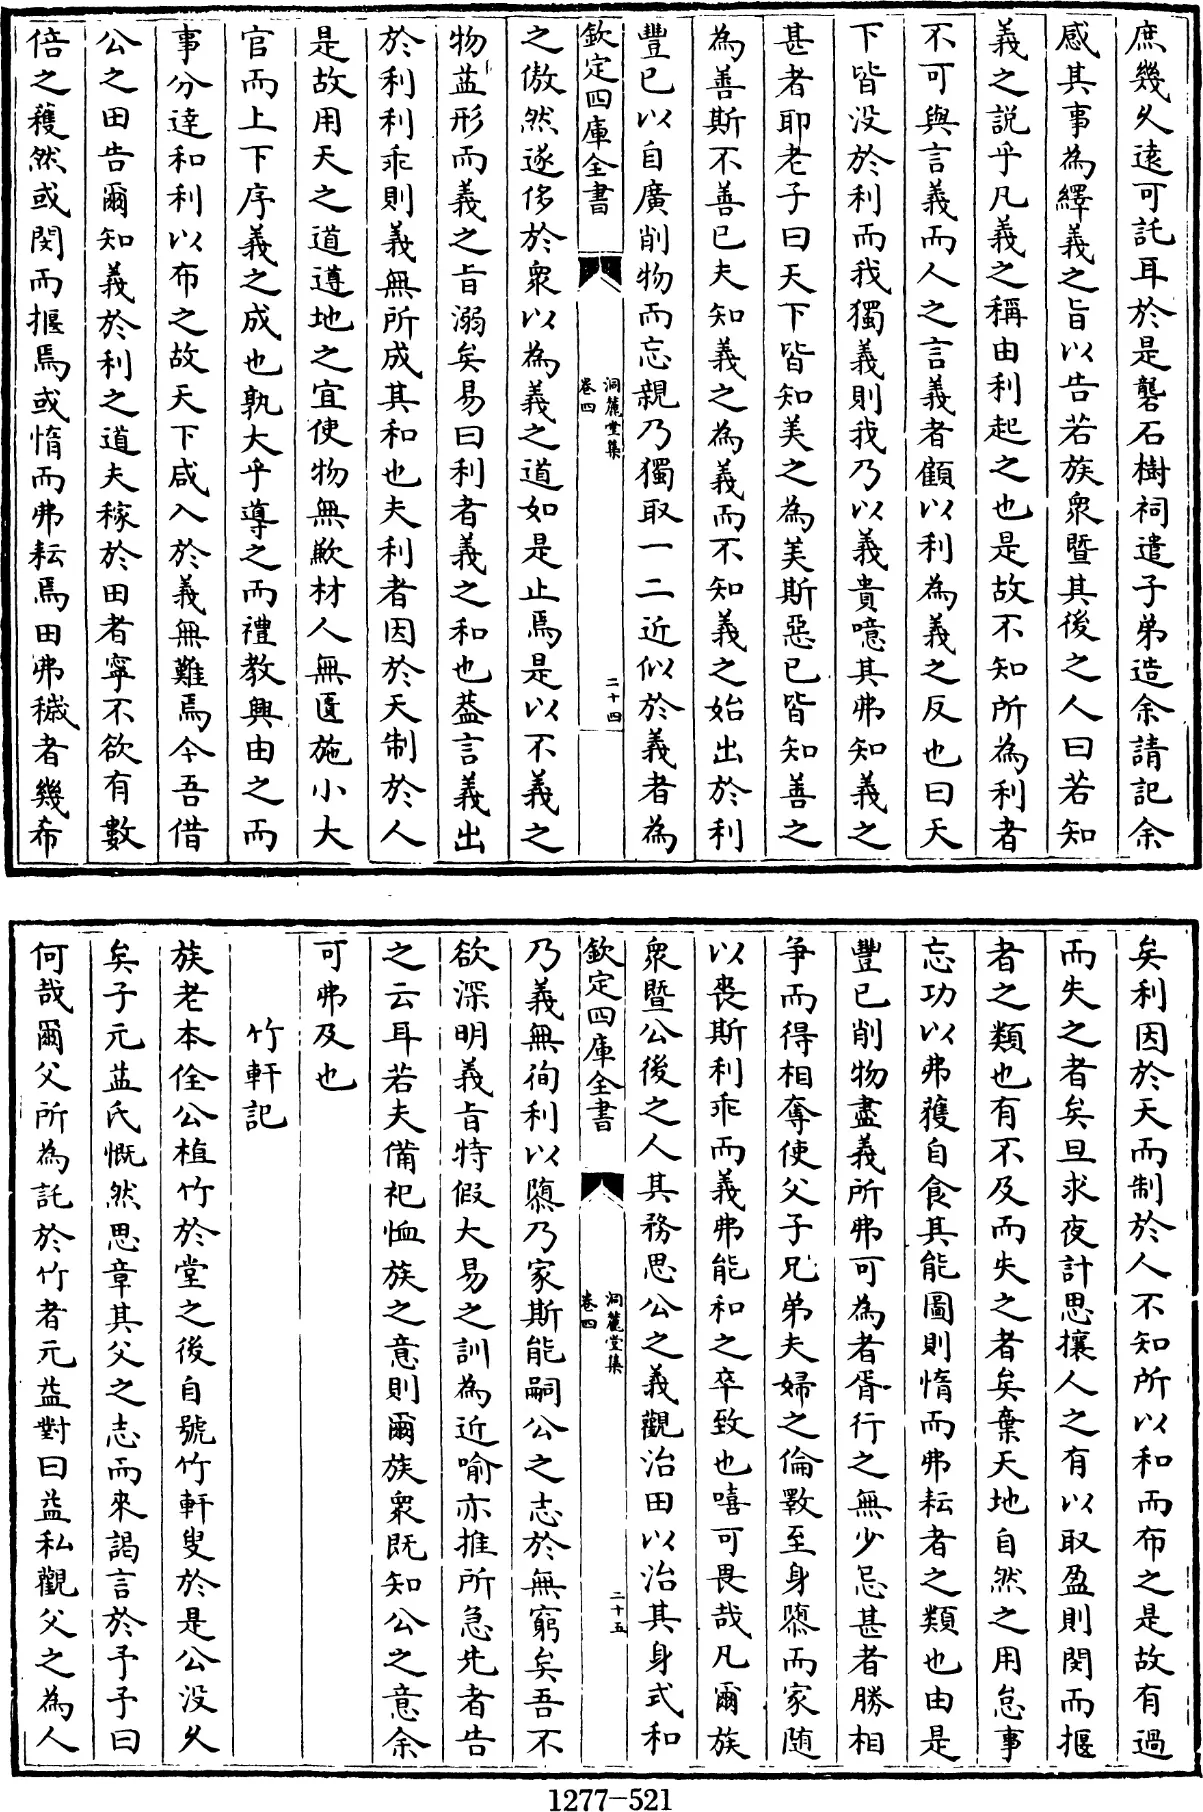 庶幾久遠可託耳於是礱石樹祠遣子弟造余請記余
感其事為繹義之旨以告若族衆暨其後之人曰若知
義之説乎凡義之稱由利起之也是故不知所為利者
不可與言義而人之言義者顧以利為義之反也曰天
下皆没於利而我獨義則我乃以義貴噫其弗知義之
甚者耶老子曰天下皆知美之為美斯惡已皆知善之
為善斯不善已夫知義之為義而不知義之始出於利
豐已以自廣削物而忘親乃獨取一二近似於義者為
欽定四庫全書
洞麓堂集
卷四
二十四
之傲然遂侈於衆以為義之道如是止焉是以不義之
物益形而義之旨溺矣易曰利者義之和也葢言義出
於利利乖則義無所成其和也夫利者因於天制於人
是故用天之道遵地之宜使物無歉材人無匱施小大
官而上下序義之成也孰大乎導之而禮教興由之而
事分達和利以布之故天下咸入於義無難焉今吾借
公之田告爾知義於利之道夫稼於田者寧不欲有數
倍之穫然或閔而揠焉或惰而弗耘焉田弗穢者幾希
矣利因於天而制於人不知所以和而布之是故有過
而失之者矣旦求夜計思攘人之有以取盈則閔而揠
者之類也有不及而失之者矣棄天地自然之用怠事
忘功以弗獲自食其能圖則惰而弗耘者之類也由是
豐已削物盡義所弗可為者胥行之無少忌甚者勝相
争而得相奪使父子兄弟夫婦之倫斁至身隳而家随
以喪斯利乖而義弗能和之卒致也嘻可畏哉凡爾族
衆暨公後之人其務思公之義觀治田以治其身式和
欽定四庫全書
洞麓堂集
卷四
二十五
乃義無徇利以隳乃家斯能嗣公之志於無窮矣吾不
欲深明義旨特假大易之訓為近喻亦推所急先者告
之云耳若夫備祀恤族之意則爾族衆既知公之意余
可弗及也
竹軒記
族老本佺公植竹於堂之後自號竹軒叟於是公没久
矣子元益氏慨然思章其父之志而來謁言於予予曰
何哉爾父所為託於竹者元益對曰益私觀父之為人
1277-521